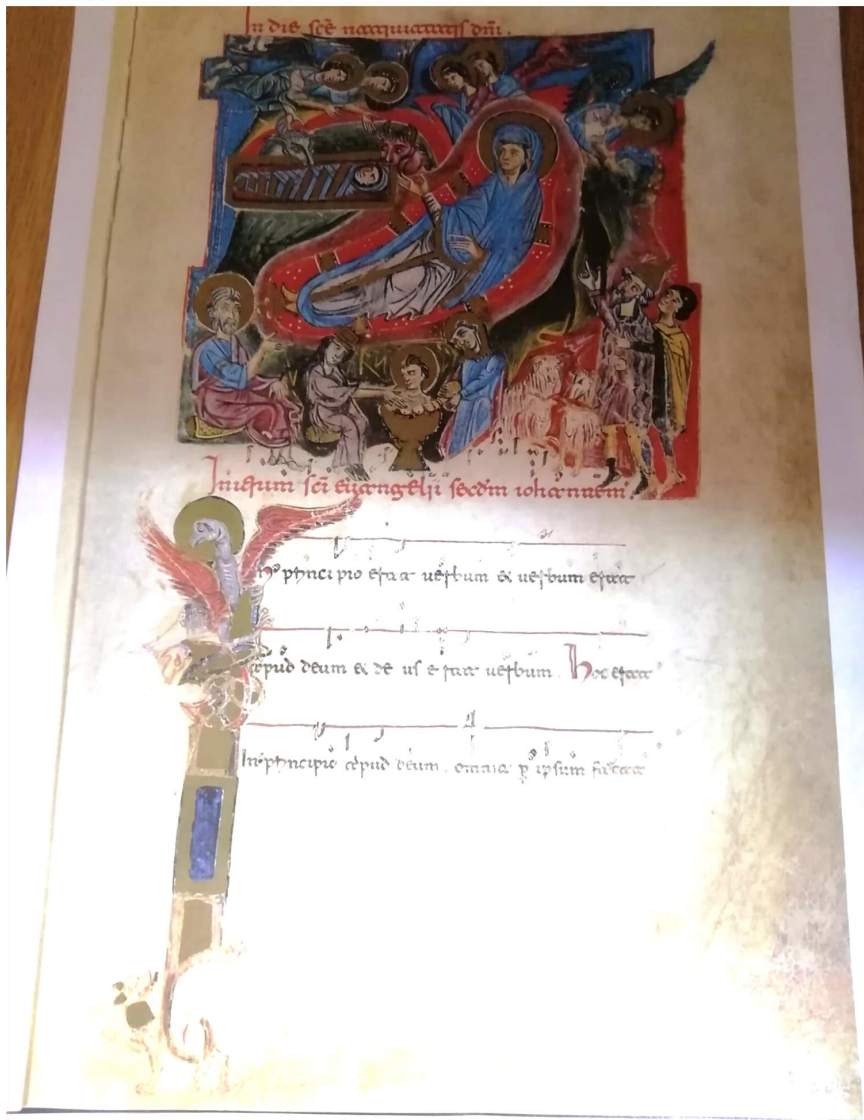 In die scē natiuitatis dn̄i.
Initium sc̄i euangelii secdm iohannem.
In principio erat uerbum & uerbum erat
apud deum & de us e rat uerbum. Hoc erat
In principio apud deum. omnia p ipsum facta